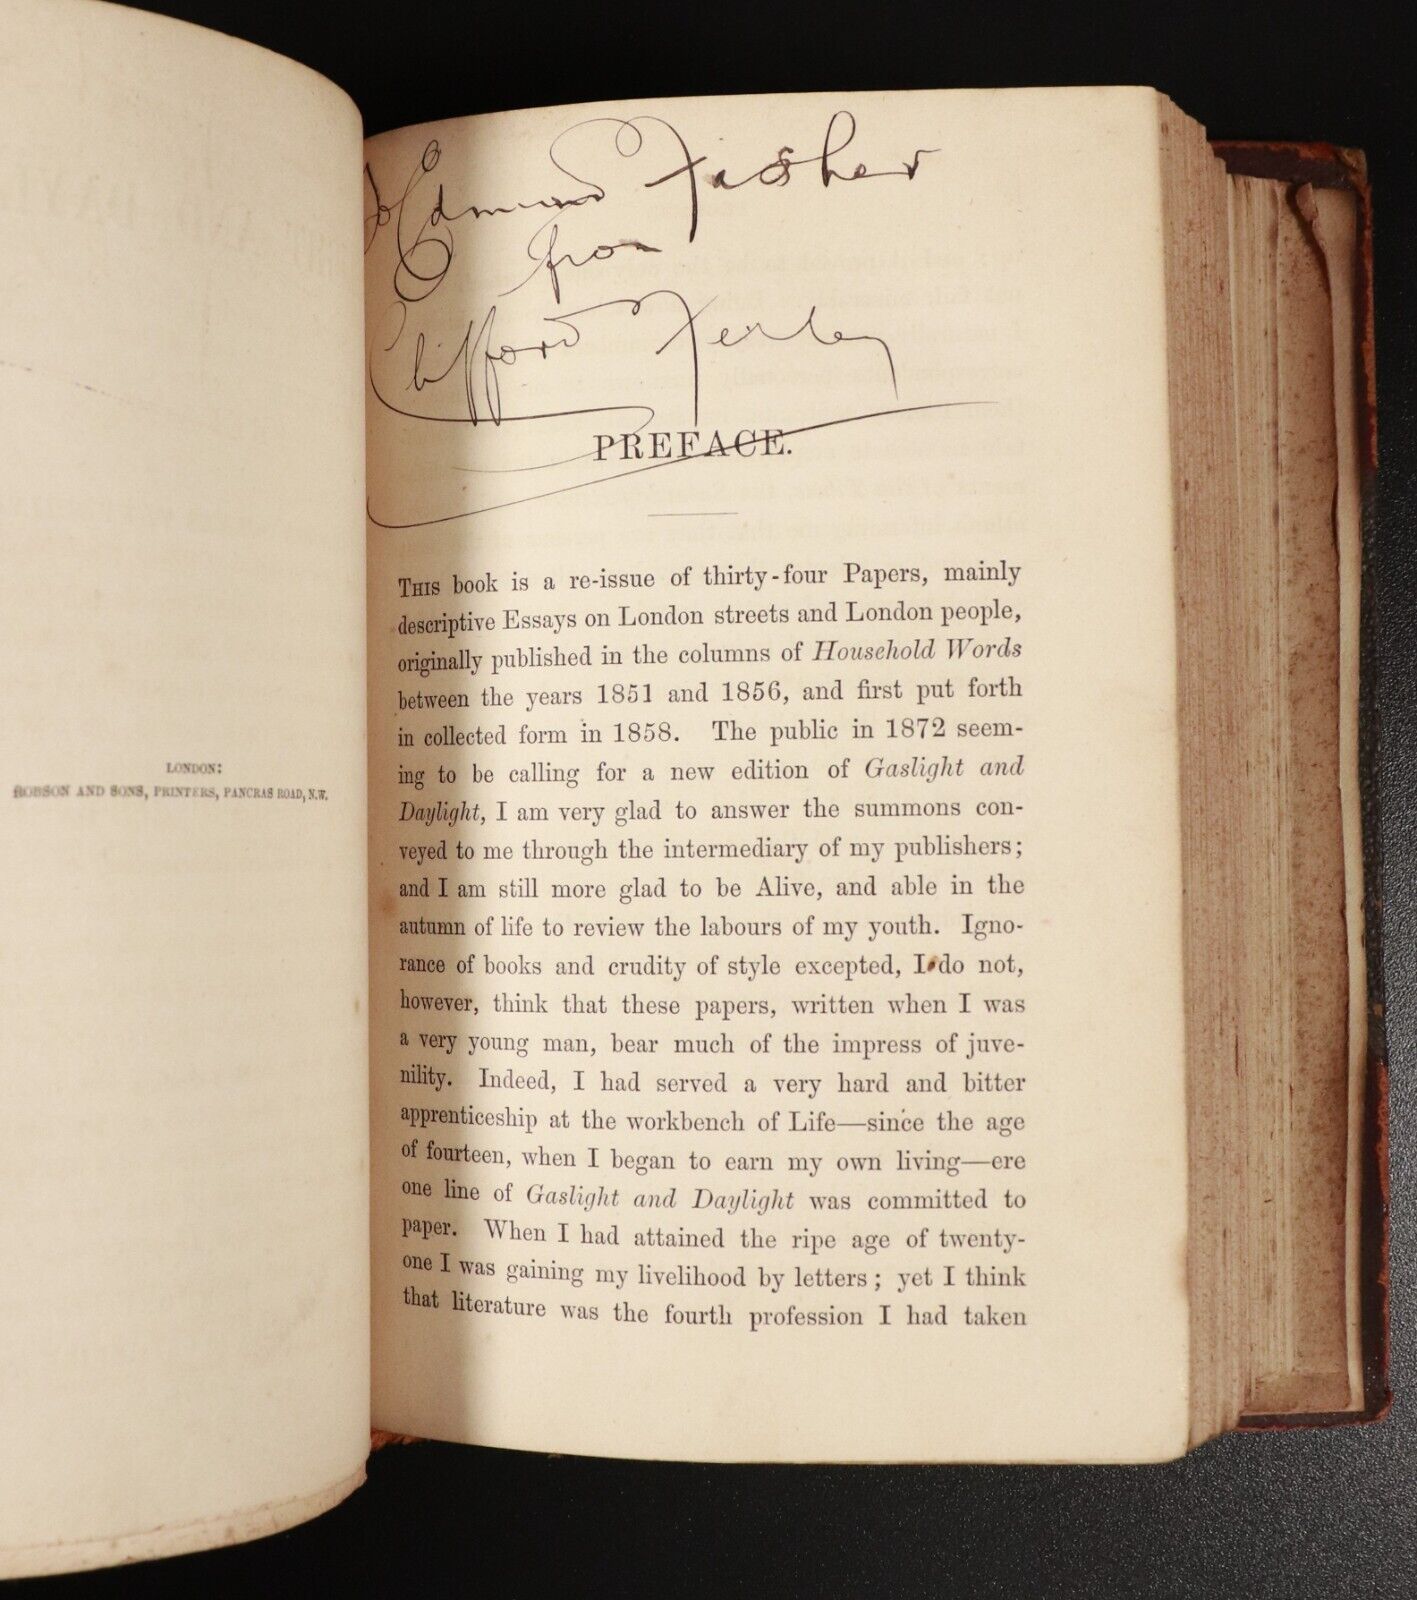 LONDON:
ROBSON AND SONS, PRINTERS, PANCRAS ROAD, N.W.
To Edmund Fisher
from
Clifford
PREFACE.
THIS book is a re-issue of thirty-four Papers, mainly
descriptive Essays on London streets and London people,
originally published in the columns of Household Words
between the years 1851 and 1856, and first put forth
in collected form in 1858. The public in 1872 seem-
ing to be calling for a new edition of Gaslight and
Daylight, I am very glad to answer the summons con-
veyed to me through the intermediary of my publishers;
and I am still more glad to be Alive, and able in the
autumn of life to review the labours of my youth. Igno-
rance of books and crudity of style excepted, I do not,
however, think that these papers, written when I was
a very young man, bear much of the impress of juve-
nility. Indeed, I had served a very hard and bitter
apprenticeship at the workbench of Life—since the age
of fourteen, when I began to earn my own living—ere
one line of Gaslight and Daylight was committed to
paper. When I had attained the ripe age of twenty-
one I was gaining my livelihood by letters; yet I think
that literature was the fourth profession I had taken